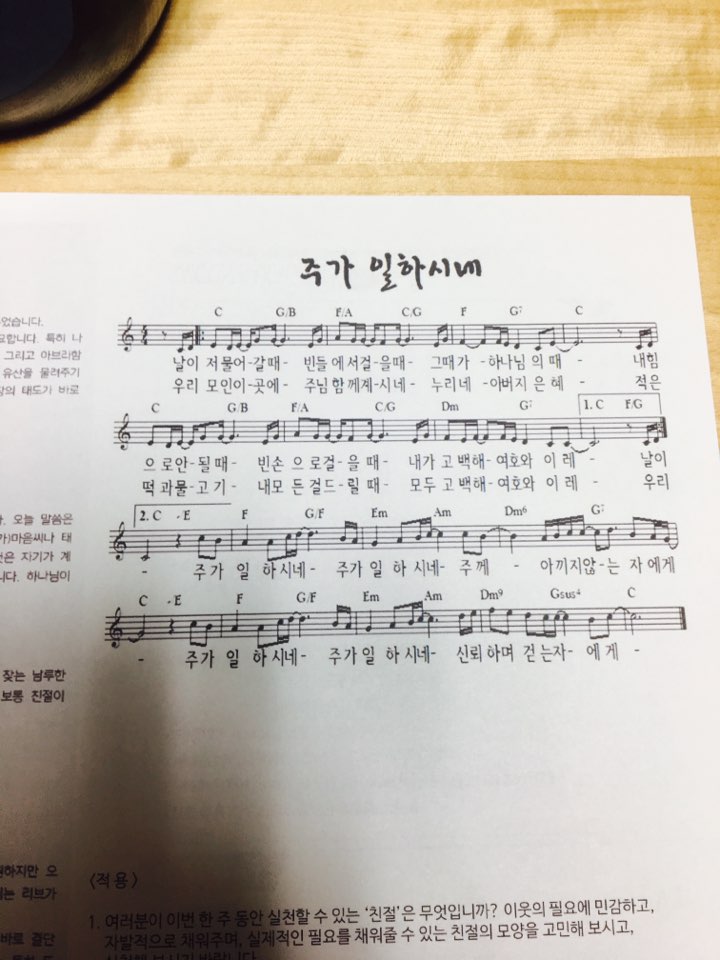 주가 일하시네
C G/B F/A C/G F G7 C
날이 저물어-갈때- 빈들에서걸을때- 그때가-하나님의때- 내힘
우리 모인이곳에- 주님함께계시네- 누리네-아버지은혜- 적은
C G/B F/A C/G Dm G7 1. C F/G
으로안-될때- 빈손으로걸-을때- 내가고백해-여호와이레- 날이
떡과물-고기- 내모든걸드-릴때- 모두고백해-여호와이레- 우리
2. C -E F G/F Em Am Dm6 G7
- 주가일하시네- 주가일하시네- 주께 - 아끼지않-는 자에게
C -E F G/F Em Am Dm9 Gsus4 C
- 주가일하시네- 주가일하시네- 신뢰하며 걷는자-에게-
었습니다.
요합니다. 특히 나
그리고 아브라함
유산을 물려주기
의 태도가 바로
오늘 말씀은
가)마음씨나 태
것은 자기가 계
니다. 하나님이
찾는 남루한
보통 친절이
원하지만 으
는 리브가
바로 결단
<적용>
1. 여러분이 이번 한 주 동안 실천할 수 있는 '친절'은 무엇입니까? 이웃의 필요에 민감하고,
자발적으로 채워주며, 실제적인 필요를 채워줄 수 있는 친절의 모양을 고민해 보시고,